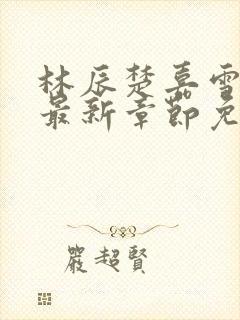 林辰楚嘉雪
最新章節免
嚴超賢